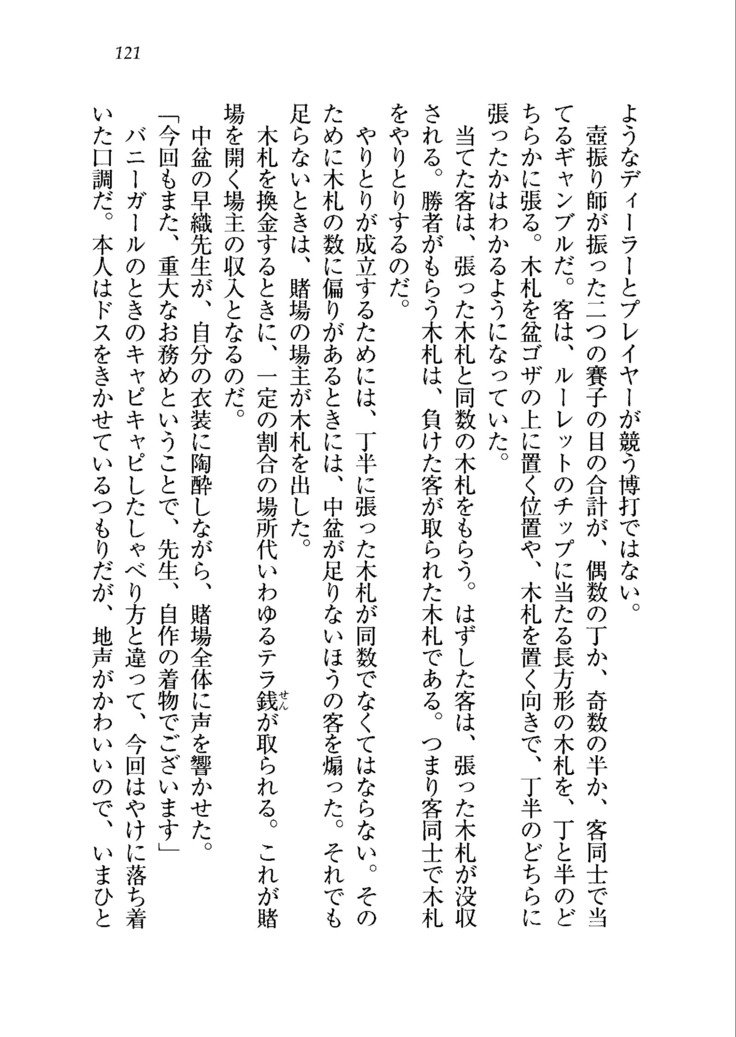 121
ようなディーラーとプレイヤーが競う博打ではない。
壺振り師が振った二つの賽子の目の合計が、偶数の丁か、奇数の半か、客同士で当
てるギャンブルだ。客は、ルーレットのチップに当たる長方形の木札を、丁と半のど
ちらかに張る。木札を盆ゴザの上に置く位置や、木札を置く向きで、丁半のどちらに
張ったかはわかるようになっていた。
当てた客は、張った木札と同数の木札をもらう。はずした客は、張った木札が没収
される。勝者がもらう木札は、負けた客が取られた木札である。つまり客同士で木札
をやりとりするのだ。
やりとりが成立するためには、丁半に張った木札が同数でなくてはならない。その
ために木札の数に偏りがあるときには、中盆が足りないほうの客を煽った。それでも
足らないときは、賭場の場主が木札を出した。
木札を換金するときに、一定の割合の場所代いわゆるテラ銭せんが取られる。これが賭
場を開く場主の収入となるのだ。
中盆の早織先生が、自分の衣装に陶酔しながら、賭場全体に声を響かせた。
「今回もまた、重大なお務めということで、先生、自作の着物でございます」
バニーガールのときのキャピキャピしたしゃべり方と違って、今回はやけに落ち着
いた口調だ。本人はドスをきかせているつもりだが、地声がかわいいので、いまひと